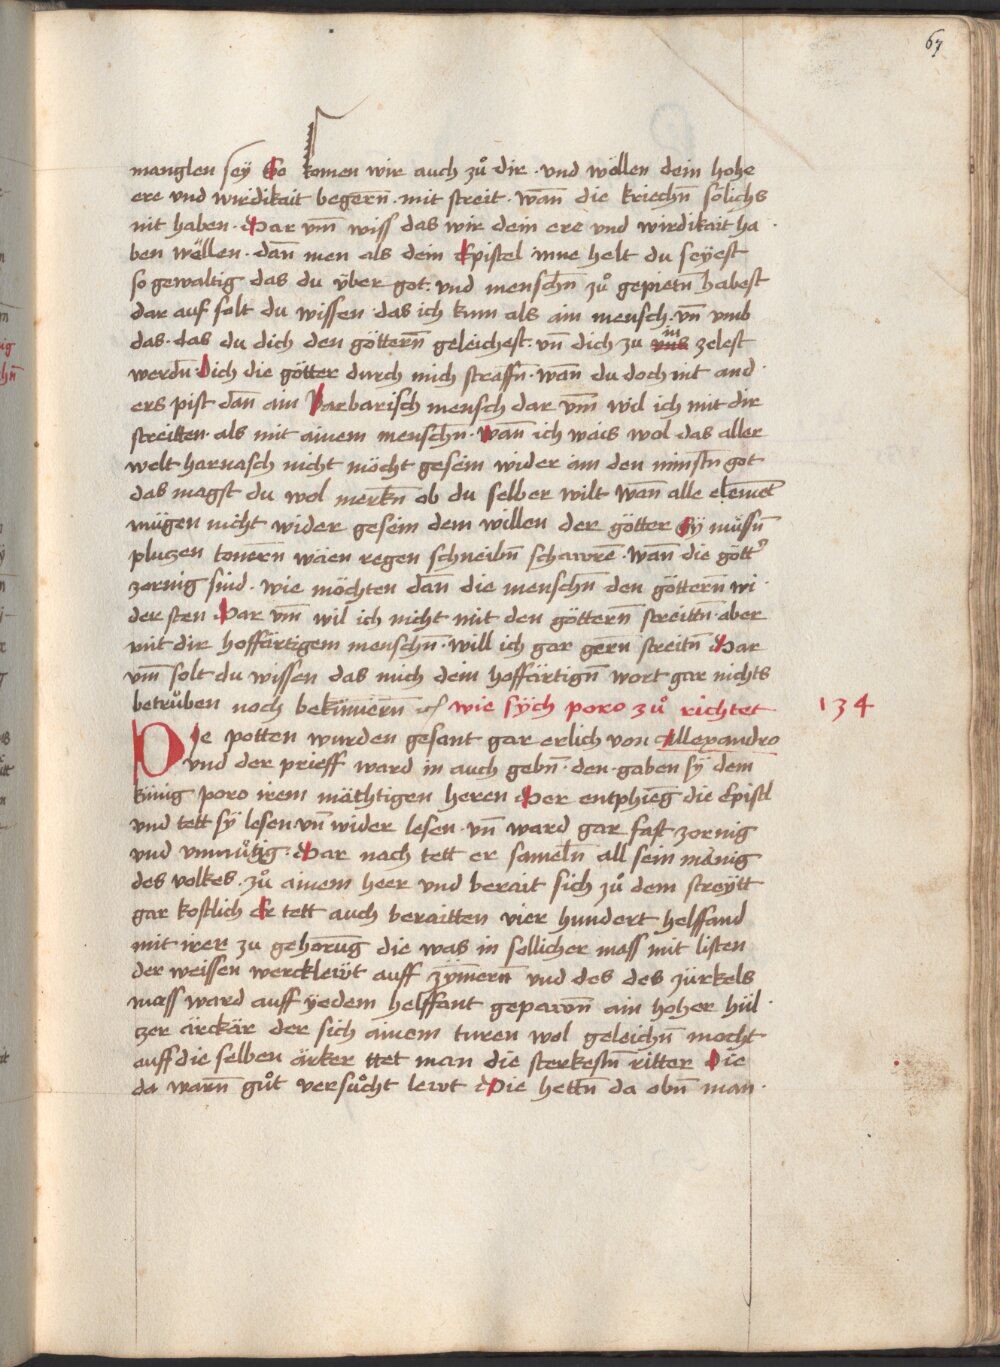 67
manglen seÿ So komen wir auch zuͦ dir · vnd wöllen dein hohe
ere vnd wirdikait begern̄ · mit streit · wan̄ die kriechn̄ sölichs
nit haben · Dar vm̄ wiss das wir dein ere vnd wirdikait ha
ben wëllen · dan̄ men als dein Epistel inne helt du seÿest
so gewaltig das du v̈ber got : vnd menschn̄ zuͦ gepietn̄ habest
dar auf solt du wissen · das ich kum als ain mensch · vn̄ vmb
das · das du dich den göttern̄ geleichest · vn̄ dich zu in zelest
werdn̄ · Dich die götter durch mich straffn̄ · wan̄ du doch nit and
ers pist dan̄ ain Barbarisch mensch dar vm̄ wil ich mit dir
streitten · als mit ainem menschn̄ · wan̄ ich wais wol das aller
welt harnasch nicht möcht gesein wider ain den minstn̄ got
das magst du wol merkn̄ ob du selber wilt wan̄ alle elemēt
mügen nicht wider gesein dem willen der götter Sÿ müssn̄
pluzen tonern̄ wäen regen schneibn̄ schawrē · wan̄ die gött᾽
zornig sind · wie möchten dan̄ die menschn̄ den göttern̄ wi
der sten Dar vm̄ wil ich nicht mit den göttern̄ streittn̄ · aber
mit dir hoffärtigem menschn̄ · will ich gar gern̄ streitn̄ Dar
vm̄ solt du wissen das mich dein hoffärtign̄ wort gar nichts
betruͦben noch bekümern̄ ⁊c̄ wie sÿch poro zuͦ richtet 134
Die potten wurden gesant gar erlich von Allexandro
vnd der prieff ward in auch gebn̄ · den · gaben sÿ dem
künig poro irem mächtigen heren Der entphieng die Epistl
vnd tett sÿ lesen vn̄ wider lesen · vn̄ ward gar fast zornig
vnd vnmuͦtig · Dar nach tett er sameln̄ all sein mënig
des volkes · zuͦ ainem heer vnd berait sich zuͦ dem streÿtt
gar kostlich Er tett auch beraitten vier hundert helffand
mit irer zu gehorūg die was in sollicher mass mit listen
der weissen werckleẅt auff zÿmern̄ vnd des des zürkels
mass ward auff ÿedem helffant gepawn̄ ain hoher hül
zer ärckär der sich ainem turen wol geleichn̄ mocht
auff die selben ärker ttet man die sterkestn̄ ritter Die
da warn̄ guͦt versuͦcht lewt Die hettn̄ da obn̄ man